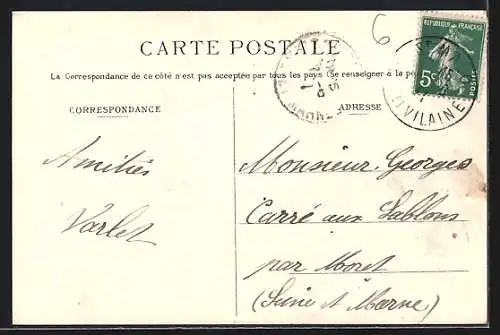 CARTE POSTALE
La Correspondance de ce côté n'est pas acceptée par tous les pays (Se renseigner à la po
CORRESPONDANCE
ADRESSE
REPUBLIQUE FRANÇAISE
5c
POSTES
VILAINE
6
Amitiés
Varlet
Monsieur Georges
Carré aux Sablons
par Moret
(Seine et Marne)